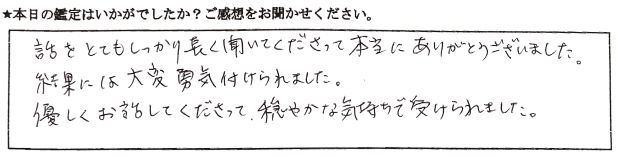 ★本日の鑑定はいかがでしたか？ご感想をお聞かせください。
話をとてもしっかり長く聞いてくださって本当にありがとうございました。
結果には大変勇気付けられました。
優しくお話してくださって、穏やかな気持ちで受けられました。